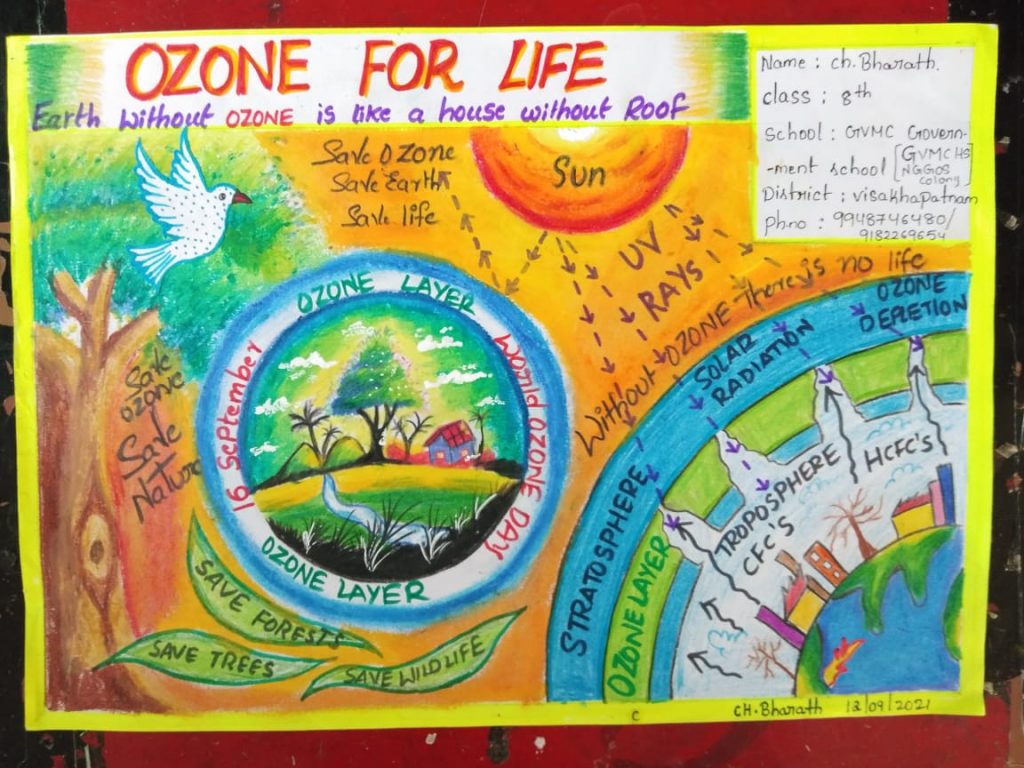 OZONE FOR LIFE
Earth Without OZONE is like a house without Roof
Name : ch. Bharath.
class : 8th
School : GVMC Govern-
-ment school [GVMCHS
NGGOS
colony]
District : visakhapatnam
Phno : 9948746480/
9182269654
Save Ozone
Save Earth
Save life
Sun
UV
RAYS
Without OZONE There is no life
OZONE LAYER
16 September
World OZONE DAY
OZONE LAYER
Save
ozone
Save
Nature
SAVE FORESTS
SAVE TREES
SAVE WILD LIFE
OZONE
DEPLETION
SOLAR
RADIATION
STRATOSPHERE
OZONE LAYER
TROPOSPHERE
CFC'S
HCFC'S
C
CH.Bharath 12/09/2021